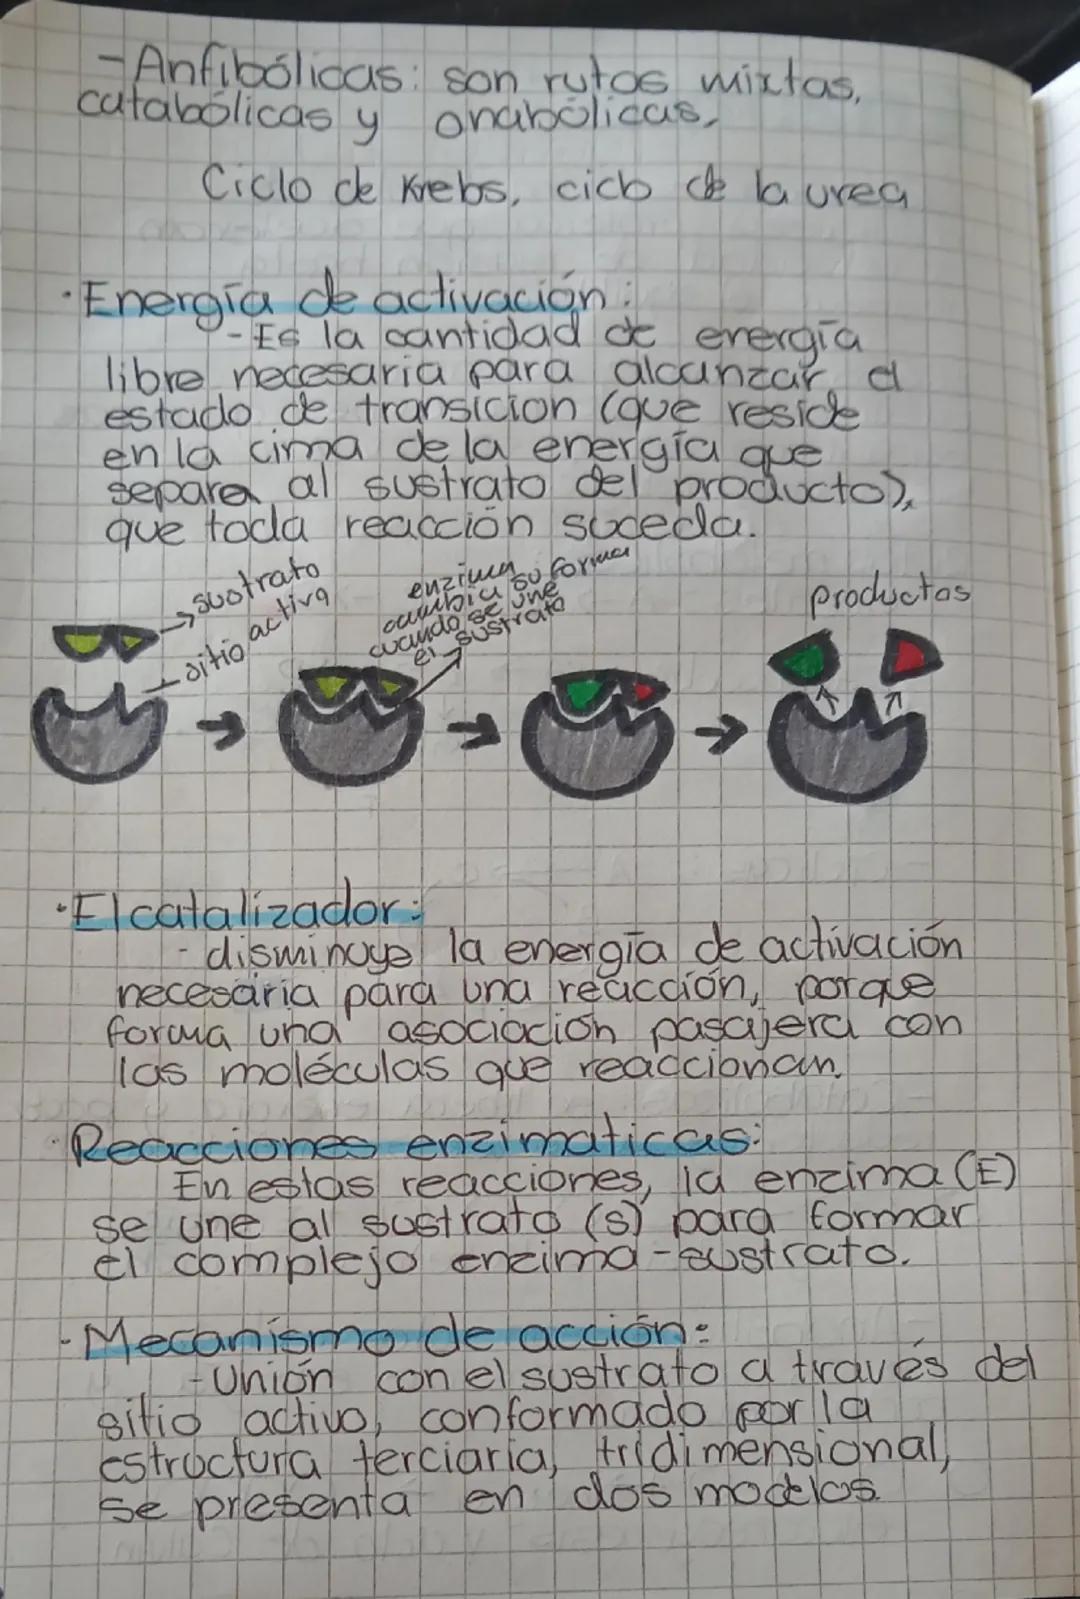 - Anfibólicas: son rutas mixtas,
catabólicas y anabólicas,
Ciclo de Krebs, ciclo de la urea
· Energía de activación:
- Es la cantidad de energía
libre necesaria para alcanzar el
estado de transicion (que reside
en la cima de la energía que
separa al sustrato del producto),
que toda reacción suceda.
sustrato
sitio activa
enzima
cambia su forma
cuando se une
el sustrato
productos
· El catalizador:
- disminuye la energía de activación
necesaria para una reacción, porque
forma una asociación pasajera con
las moléculas que reaccionan.
· Reacciones enzimaticas:
En estas reacciones, la enzima (E)
se une al sustrato (s) para formar
el complejo enzima-sustrato.
· Mecanismo de acción:
- Unión con el sustrato a través del
sitio activo, conformado por la
estructura terciaria, tridimensional,
se presenta en dos modelos.